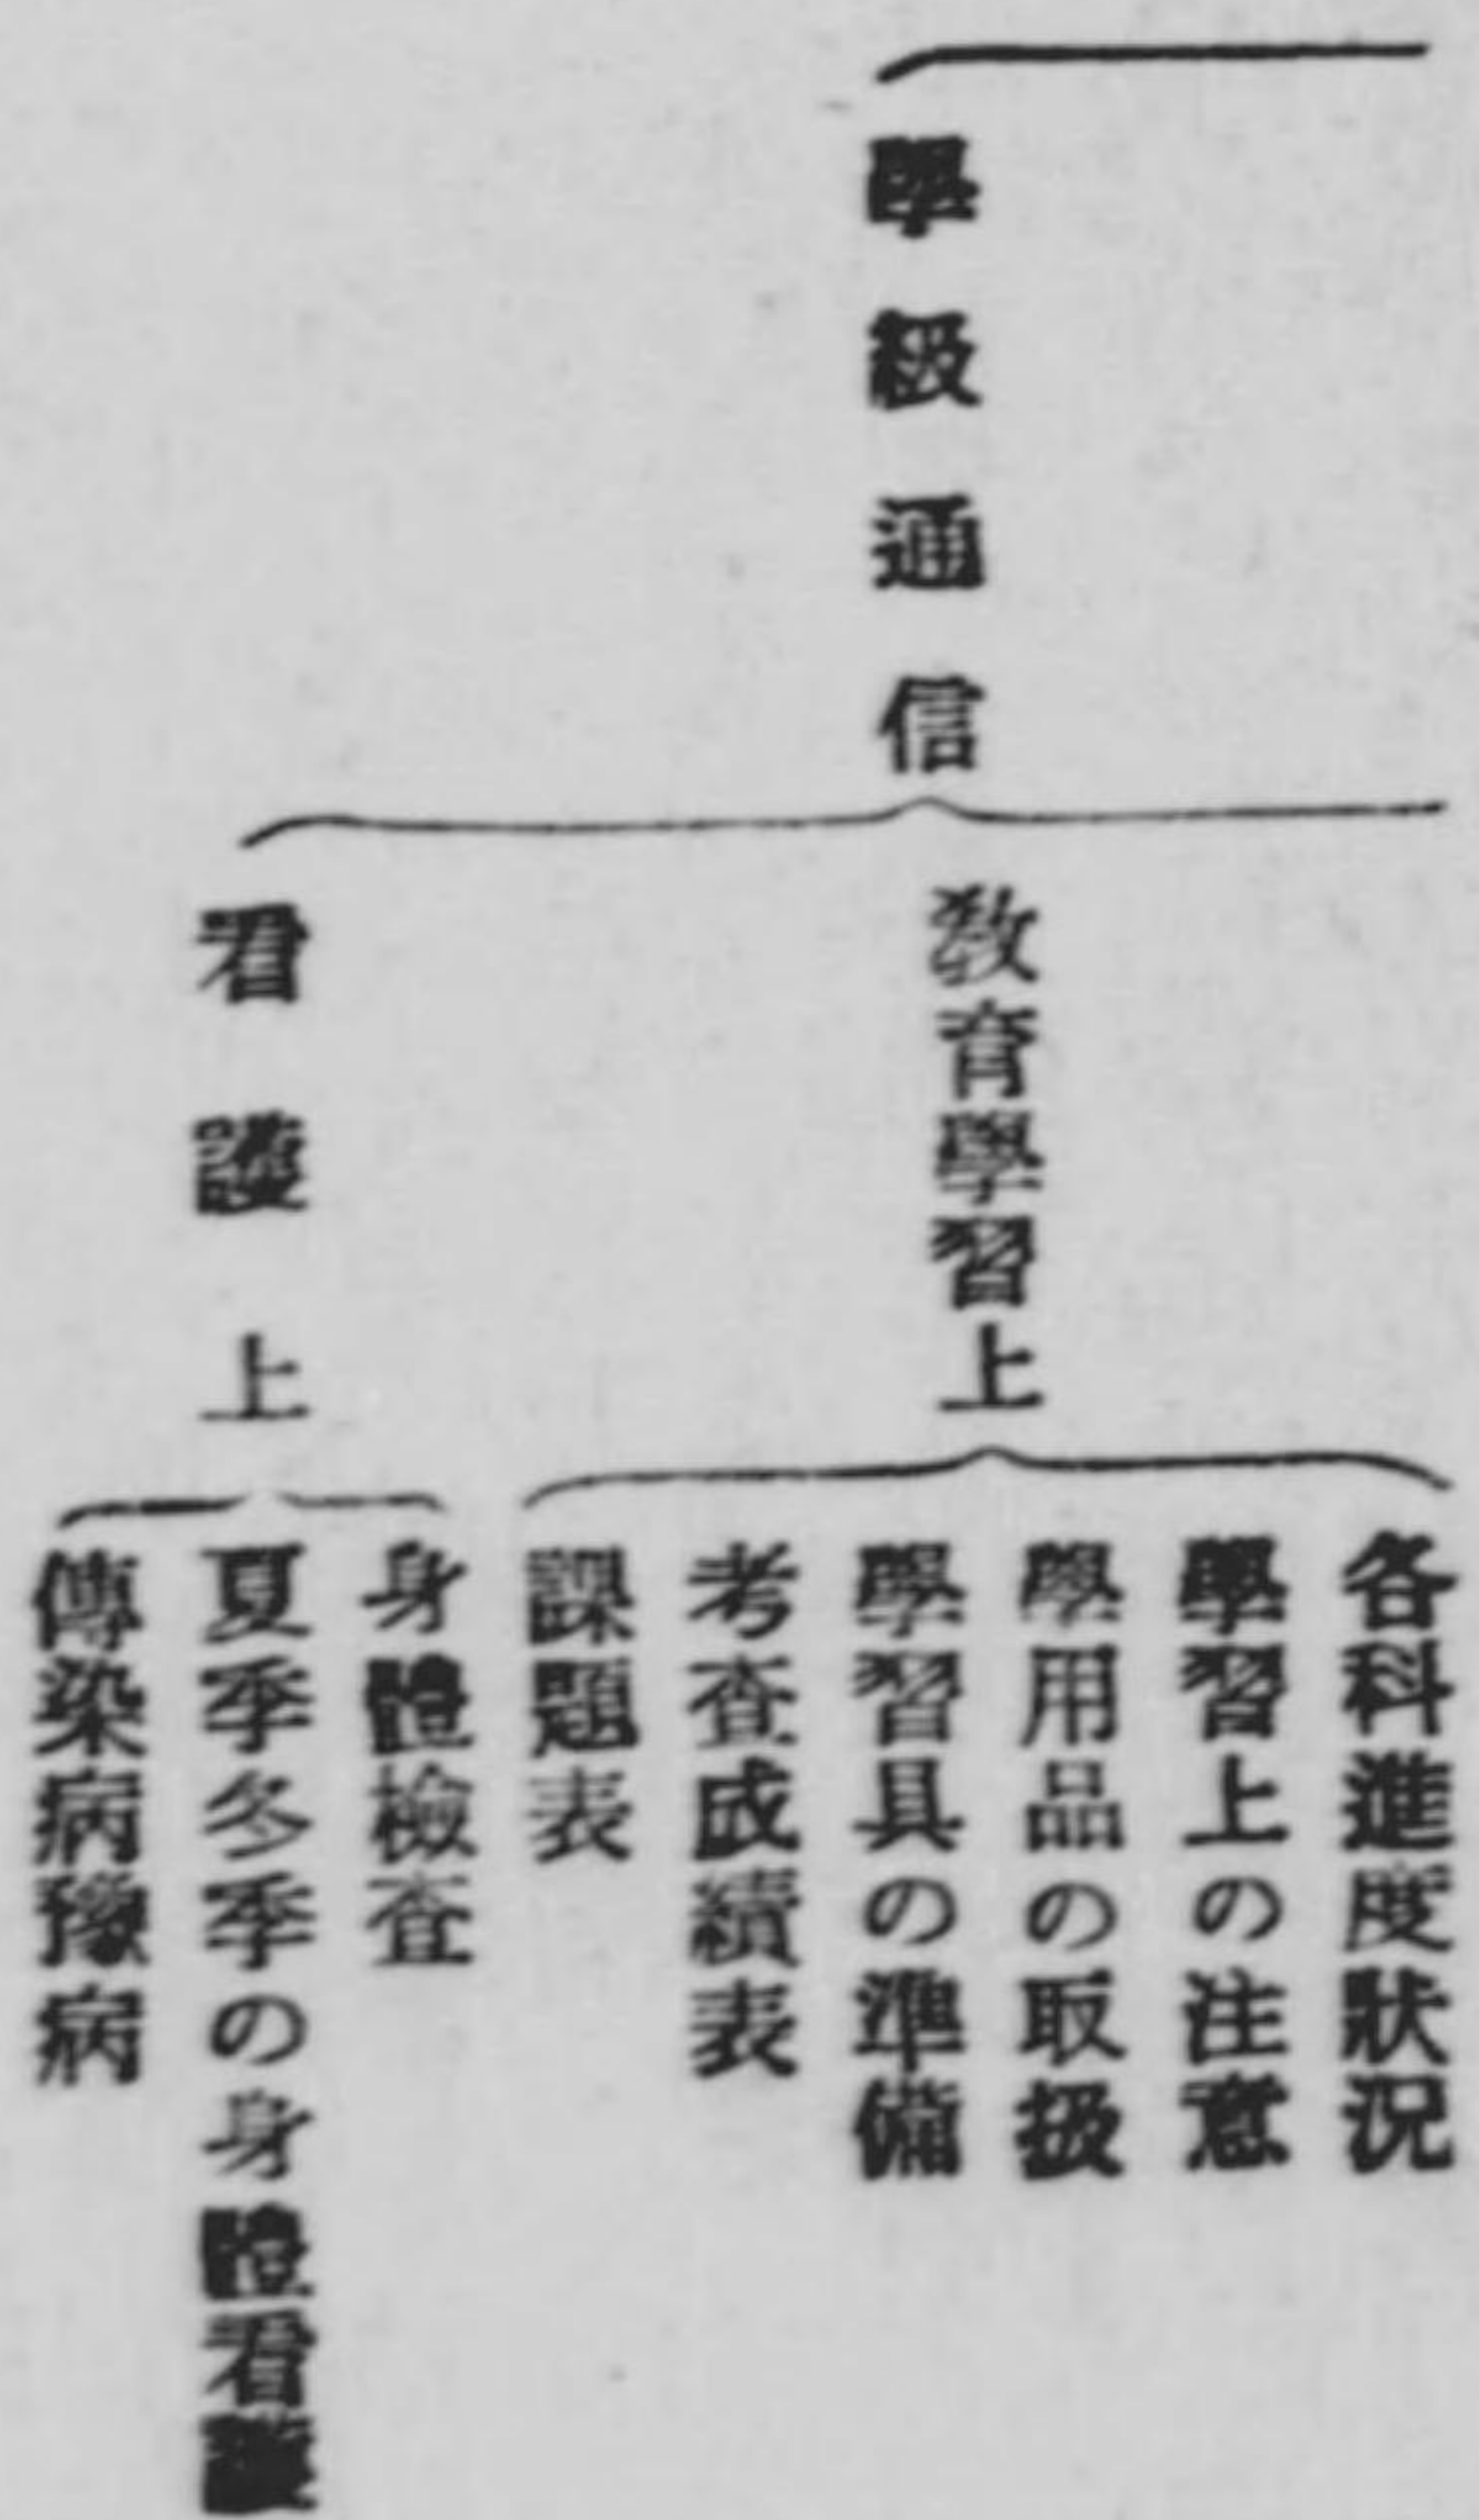 學級通信
敎育學習上
各科進度狀況
學習上の注意
學用品の取扱
學習具の準備
考査成績表
課題表
看護上
身體檢査
夏季冬季の身體看護
傳染病豫病